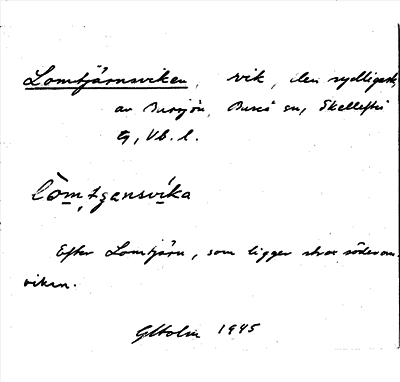 Lomtjärnsviken, vik, den sydligaste,
av Bursjön, Bureå sn, Skellefteå
tg, Vb. l.
lòm,tjænsvíka
Efter Lomtjärn, som ligger strax söder om
viken.
GHolm 1945